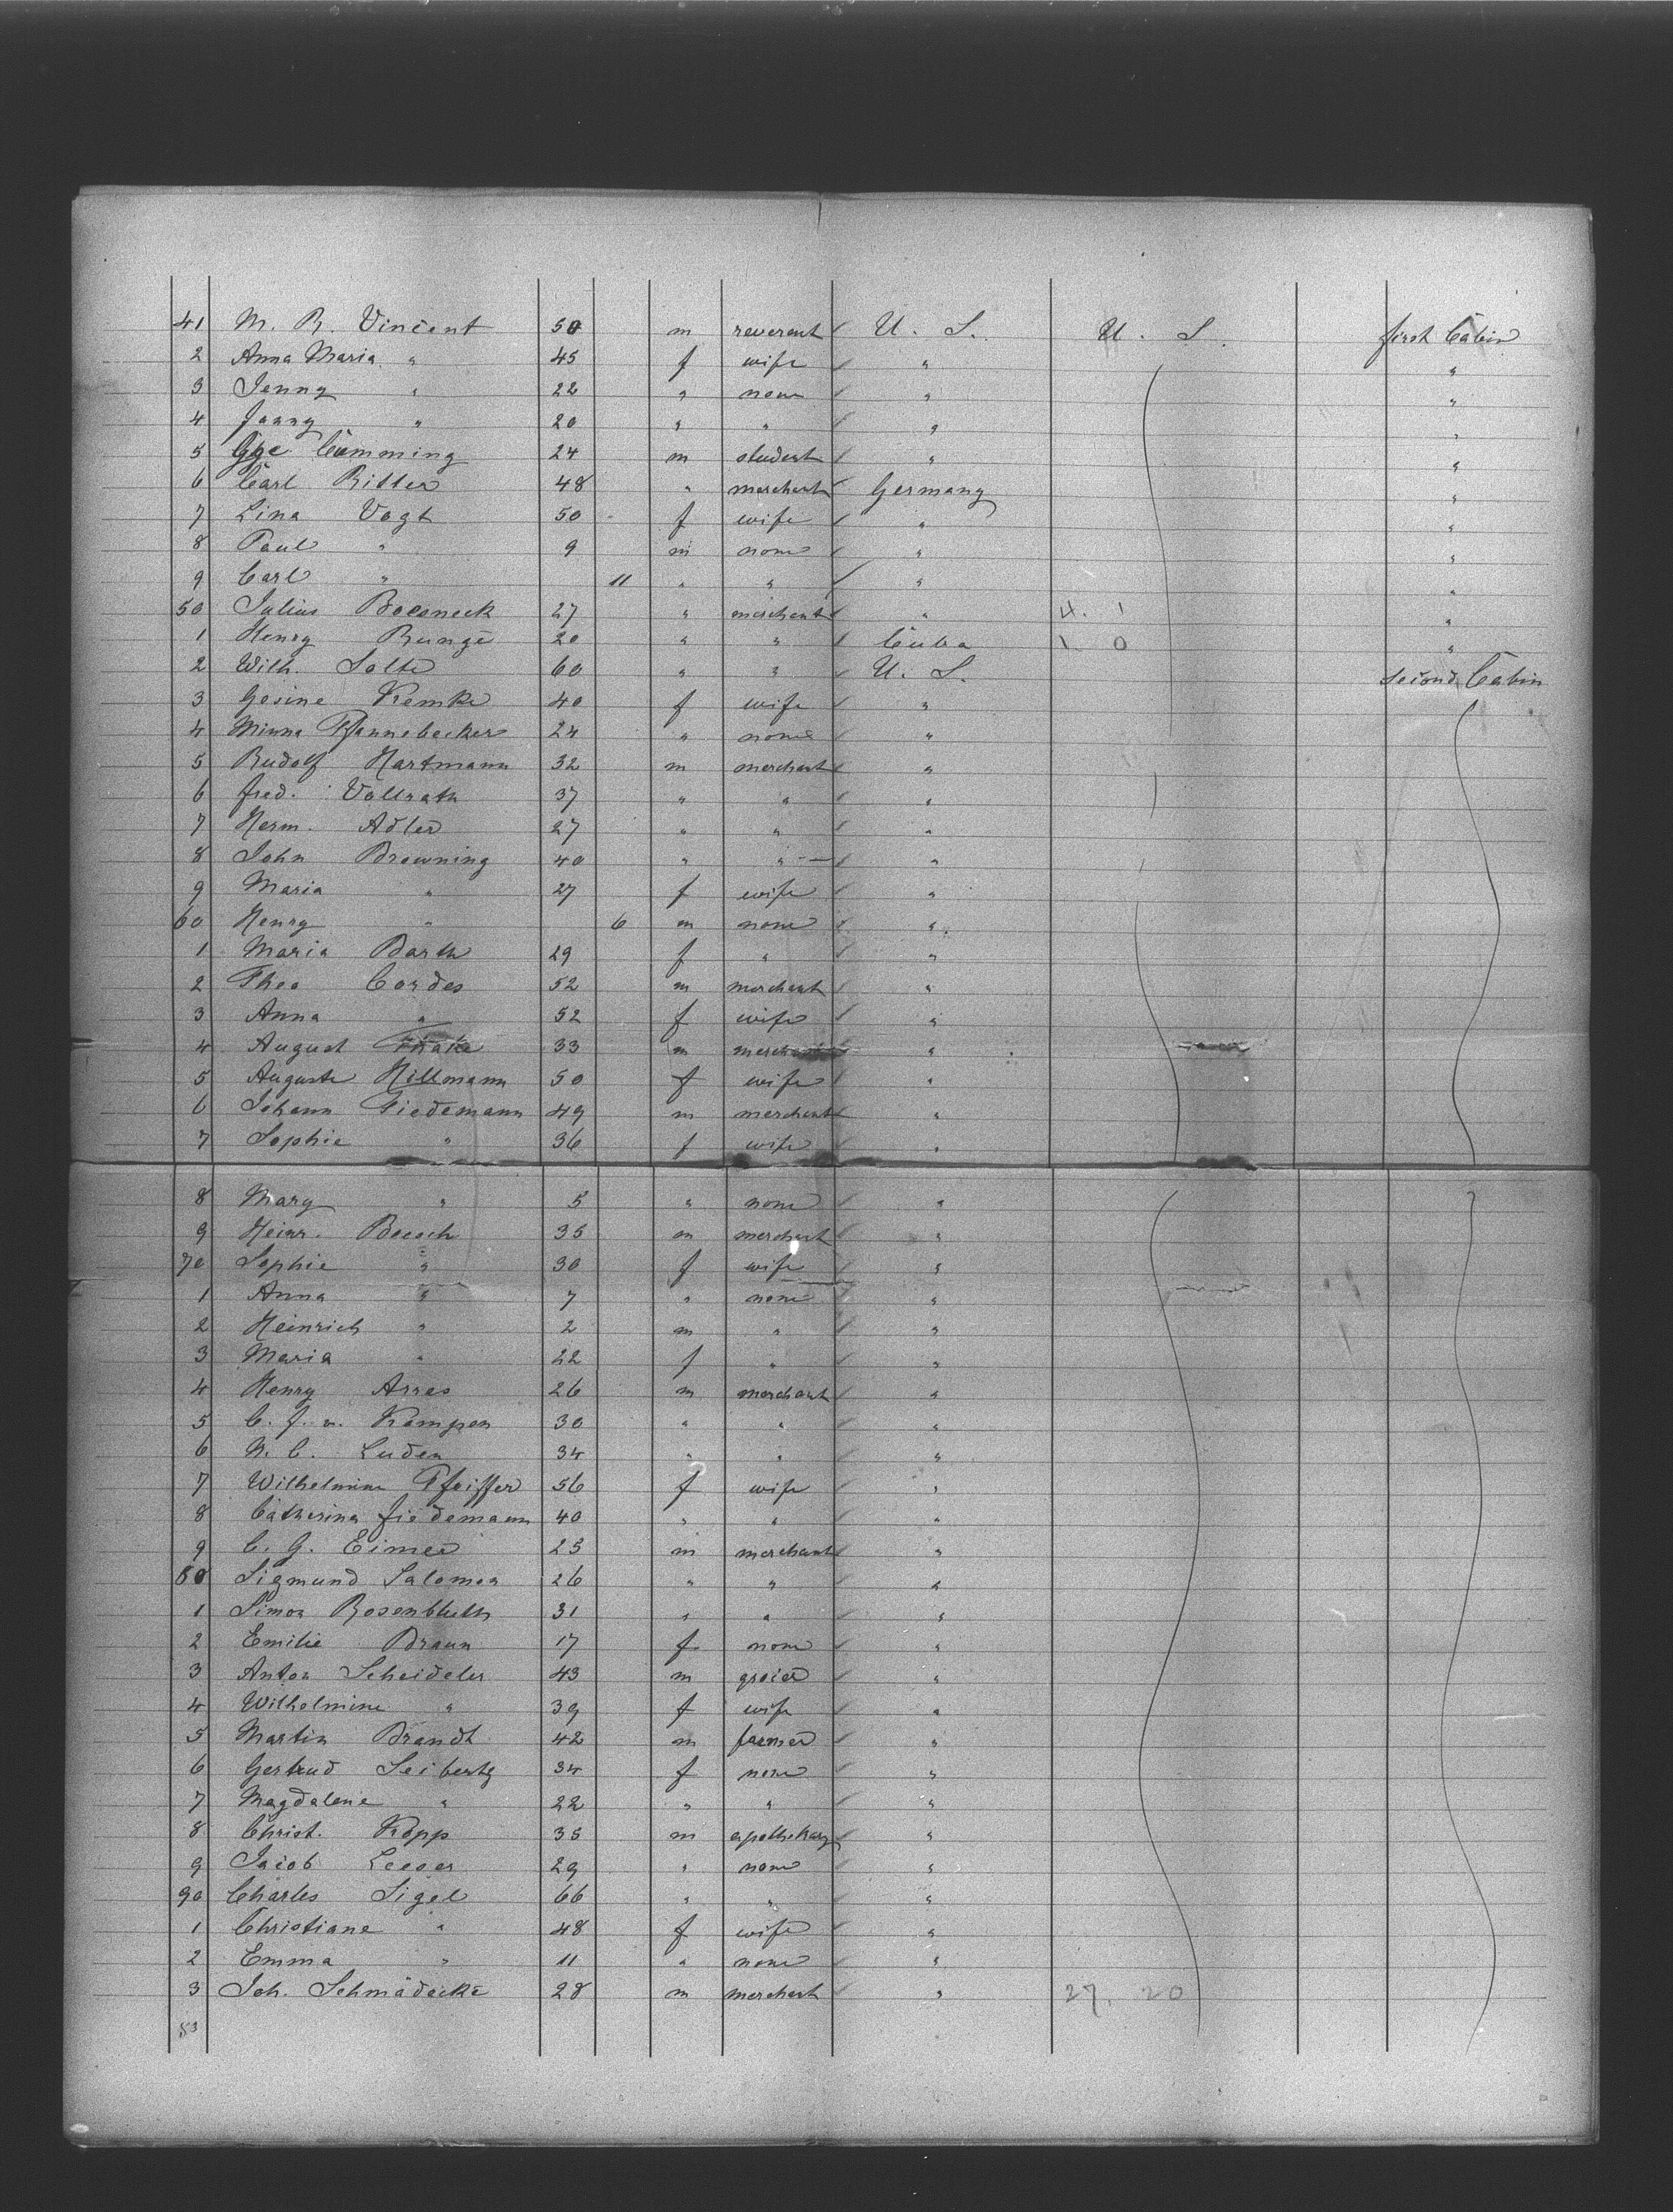 41 M. R. Vincent 50 m reverent U. S. U. S. first Cabin
2 Anna Maria " 45 f wife " "
3 Jenny " 22 " none " "
4 Fanny " 20 " " " "
5 Gge Cumming 24 m student " "
6 Carl Ritter 48 " merchant Germany "
7 Lina Vogt 50 f wife " "
8 Paul " 9 m none " "
9 Carl " 11 " " " "
50 Julius 27 " merchant " 4. 1 "
1 Henry Runge 20 " " Cuba 1 0 "
2 Wilh. Solte 60 " " U. S. second Cabin
3 Gesine Remke 40 f wife "
4 Minna Pfannebecker 24 " none "
5 Rudolf Hartmann 32 m merchant "
6 Fred. Vollrath 37 " " "
7 Herm. Adler 27 " " "
8 John Browning 40 " " "
9 Maria " 27 f wife "
60 Henry " 6 m none "
1 Maria Barth 29 f " "
2 Theo Cordes 52 m merchant "
3 Anna " 52 f wife "
4 August 33 m merchant "
5 Auguste Hillmann 50 f wife "
6 Johann Tiedemann 49 m merchant "
7 Sophie " 36 f wife "
8 Mary " 5 " none "
9 Heinr. Boesch 35 m merchant "
70 Sophie " 30 f wife "
1 Anna " 7 " none "
2 Heinrich " 2 m " "
3 Maria " 22 f " "
4 Henry Arres 26 m merchant "
5 C. J. v. Kampen 30 " " "
6 N. C. Luden 34 " " "
7 Wilhelmine Pfeiffer 56 f wife "
8 Catherina Fiedemann 40 " " "
9 C. G. Eimer 23 m merchant "
80 Sigmund Salomon 26 " " "
1 Simon Rosenbluth 31 " " "
2 Emilie Braun 17 f none "
3 Anton Scheideler 43 m grocer "
4 Wilhelmine " 39 f wife "
5 Martin Brandt 42 m farmer "
6 Gertrud Seibertz 34 f none "
7 Magdalene " 22 " " "
8 Christ. Kopp 35 m apothekary "
9 Jacob 29 " none "
90 Charles Sigel 66 " " "
1 Christiane " 48 f wife "
2 Emma " 11 " none "
3 Joh. Schmädecke 28 m merchant " 27. 20
53